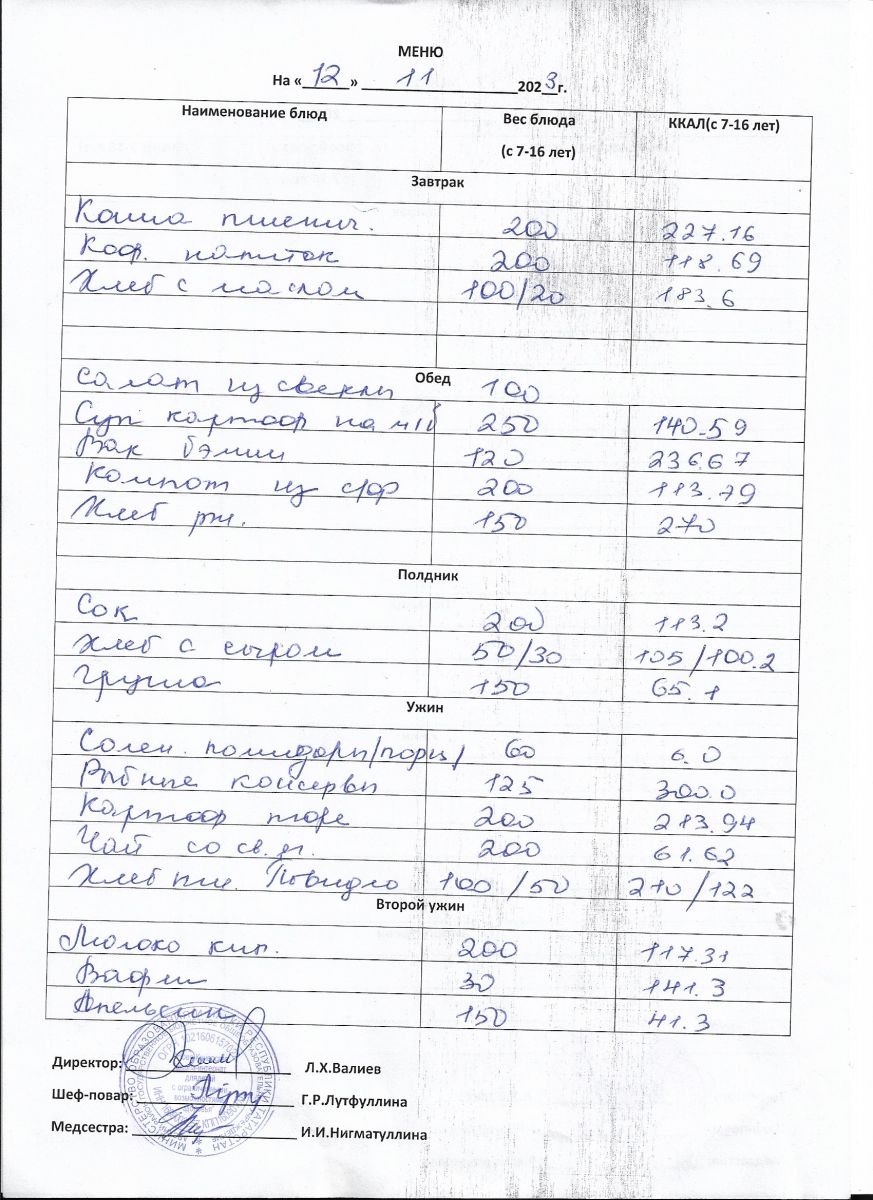 МЕНЮ
На «12» 11 2023г.
Наименование блюд Вес блюда (с 7-16 лет) ККАЛ(с 7-16 лет)
Завтрак
Каша пшенич. 200 227.16
Коф. напиток 200 118.69
Хлеб с маслом 100/20 183.6
Обед
Салат из свеклы 100
Суп картоф на м/б 250 140.59
Вак бэлиш 120 236.67
Компот из с/ф 200 113.79
Хлеб рж. 150 270
Полдник
Сок 200 113.2
Хлеб с сыром 50/30 105/100.2
Груша 150 65.1
Ужин
Солен. помидоры/порц/ 60 6.0
Рыбные консервы 125 300.0
Картоф пюре 200 213.94
Чай со св.яг. 200 61.62
Хлеб пш. Повидло 100/50 210/122
Второй ужин
Молоко кип. 200 117.31
Вафли 30 141.3
Апельсин 150 41.3
Директор: Л.Х.Валиев
Шеф-повар: Г.Р.Лутфуллина
Медсестра: И.И.Нигматуллина